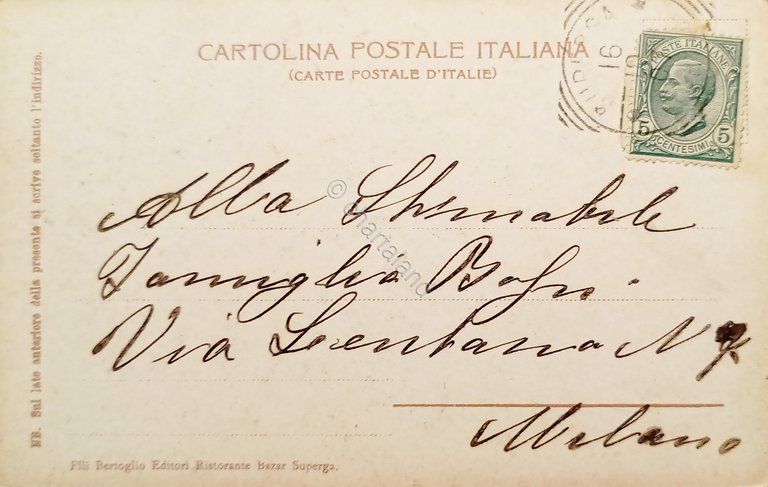 CARTOLINA POSTALE ITALIANA
(CARTE POSTALE D'ITALIE)
16
POSTE ITALIANE
5 5
CENTESIMI
NB. Sul lato anteriore della presente si scrive soltanto l'indirizzo.
Alla Stimabile
Famiglia
Via Lentana N
Milano
© chartaland
Flli Bertoglio Editori Ristorante Bazar Superga.